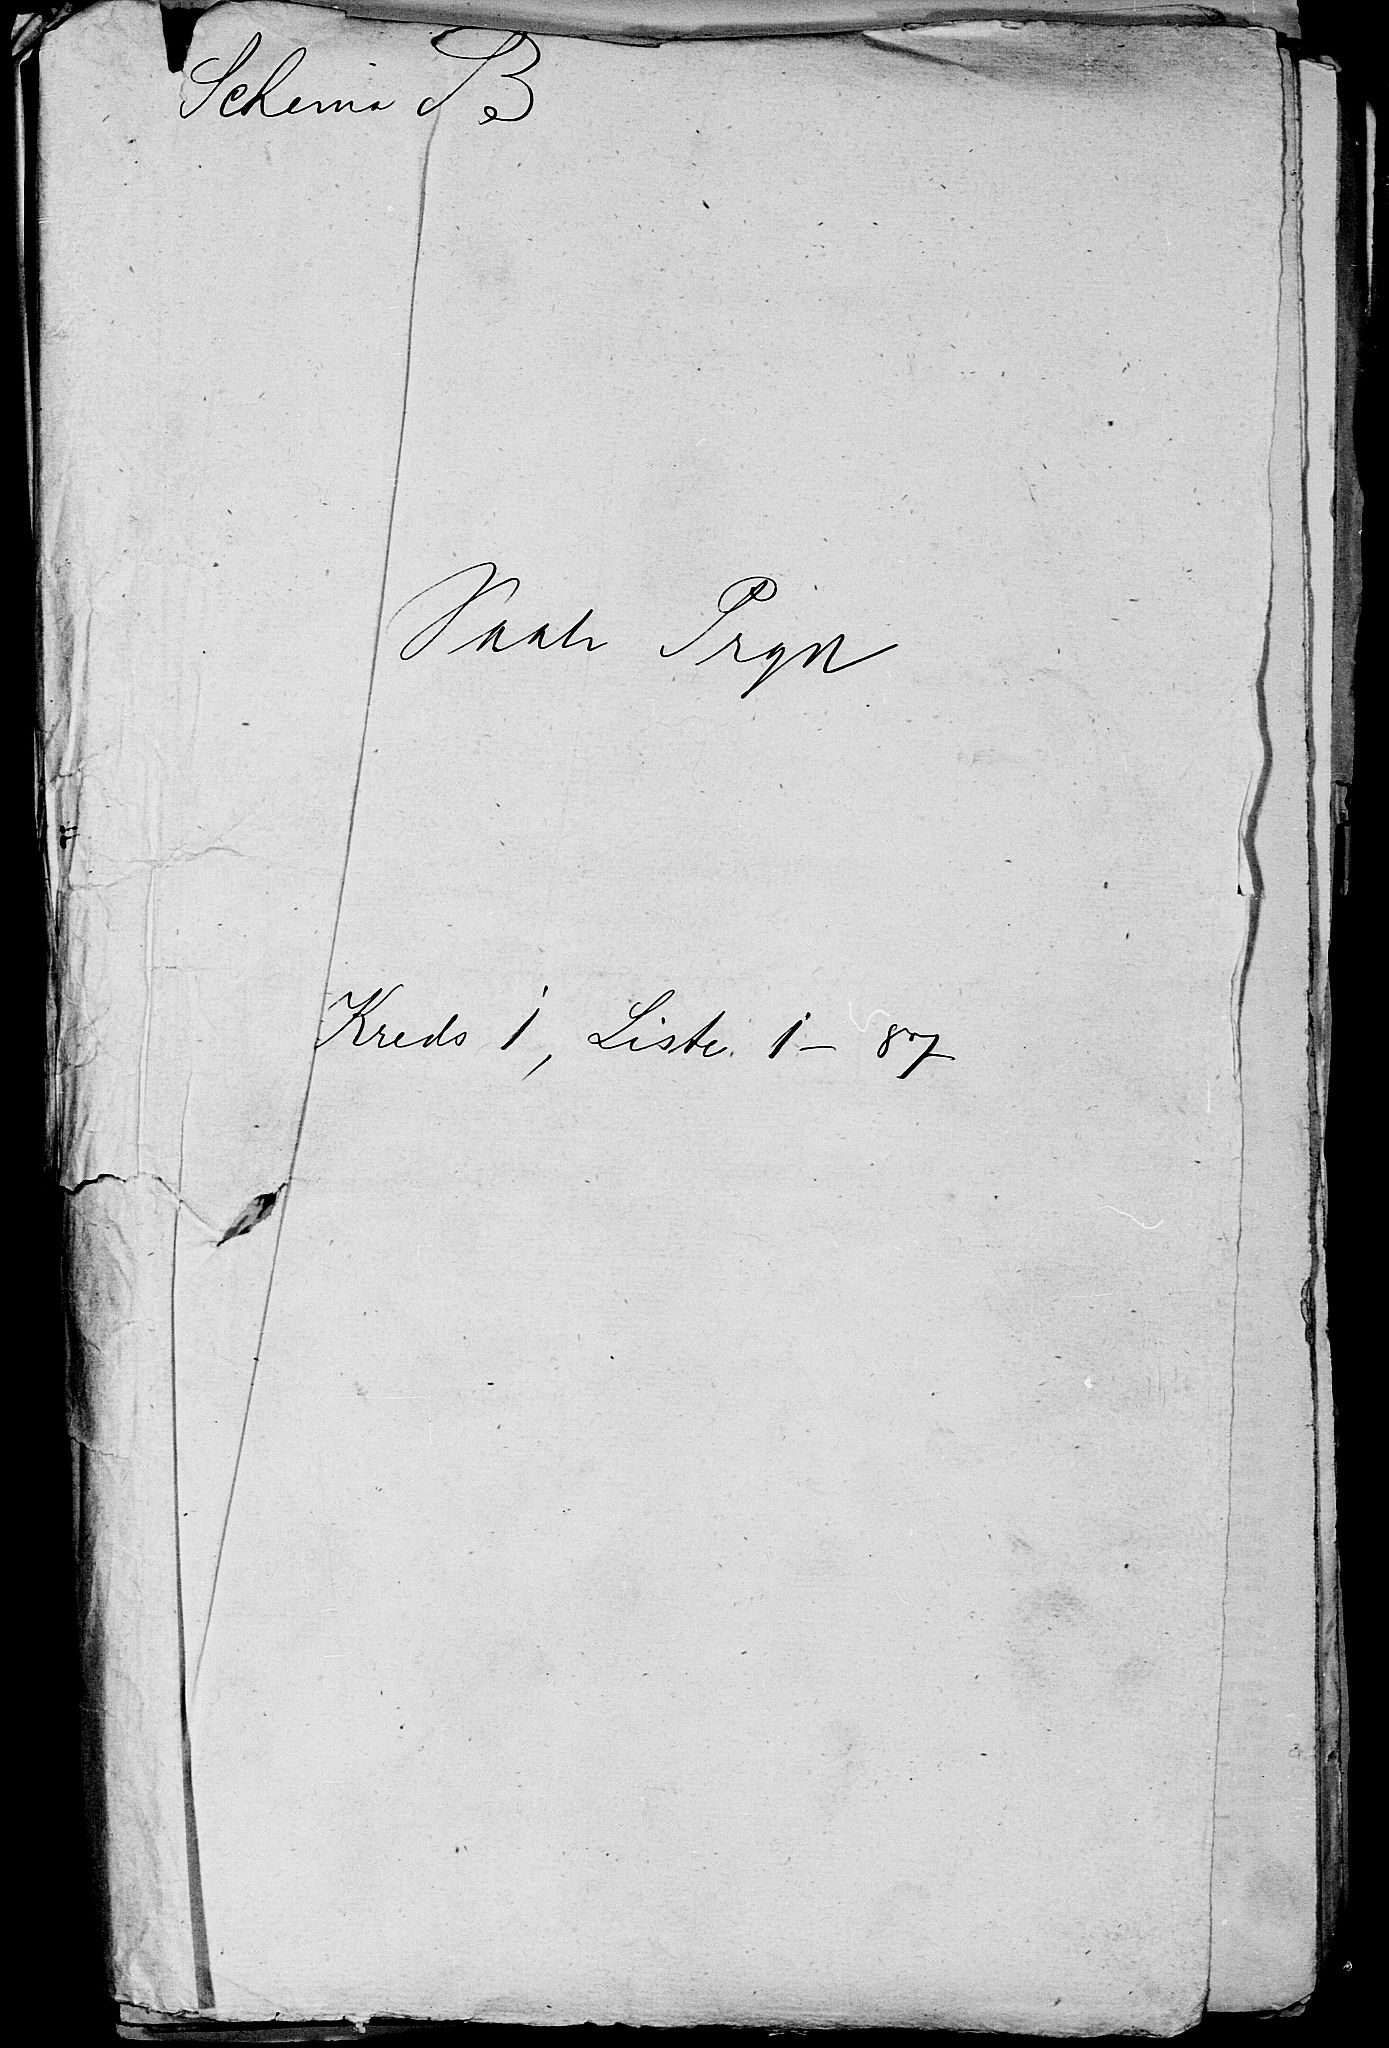 Schema B
Vaale Prgd
Kreds 1, Liste 1 - 87